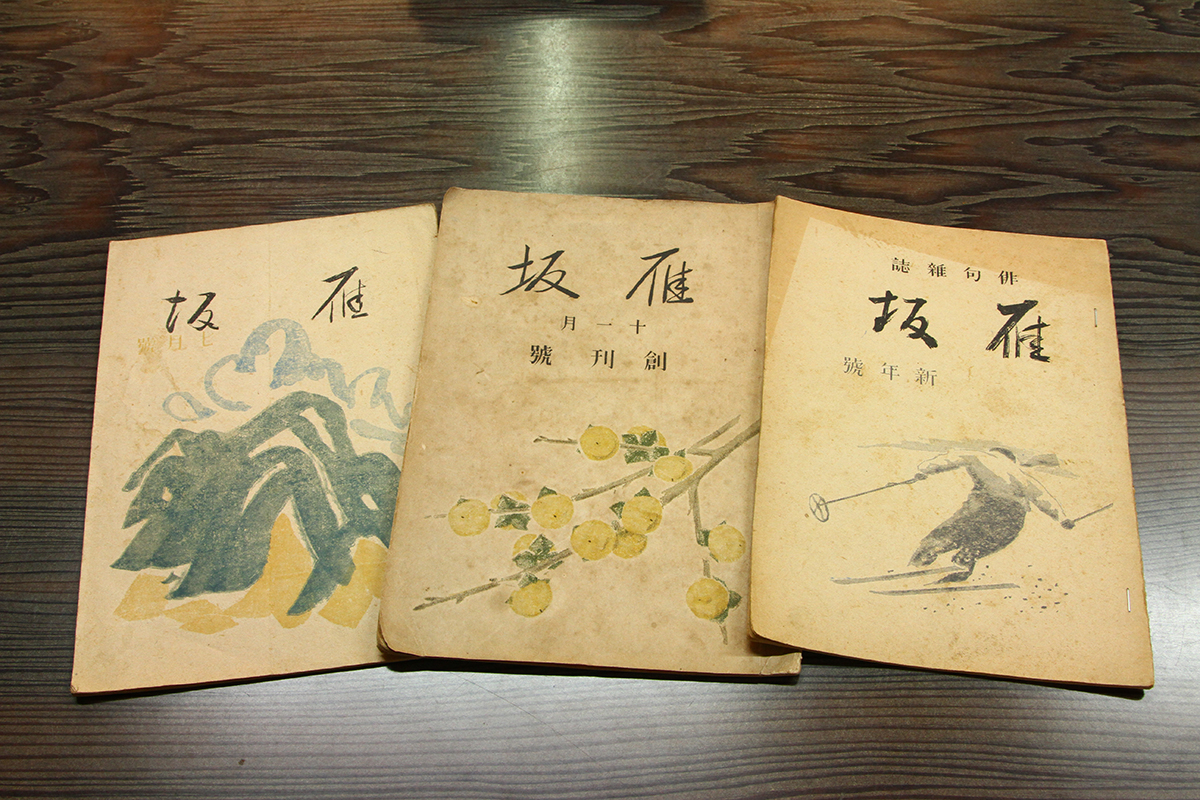 雁坂
七月號
雁坂
十一月
創刊號
俳句雑誌
雁坂
新年號